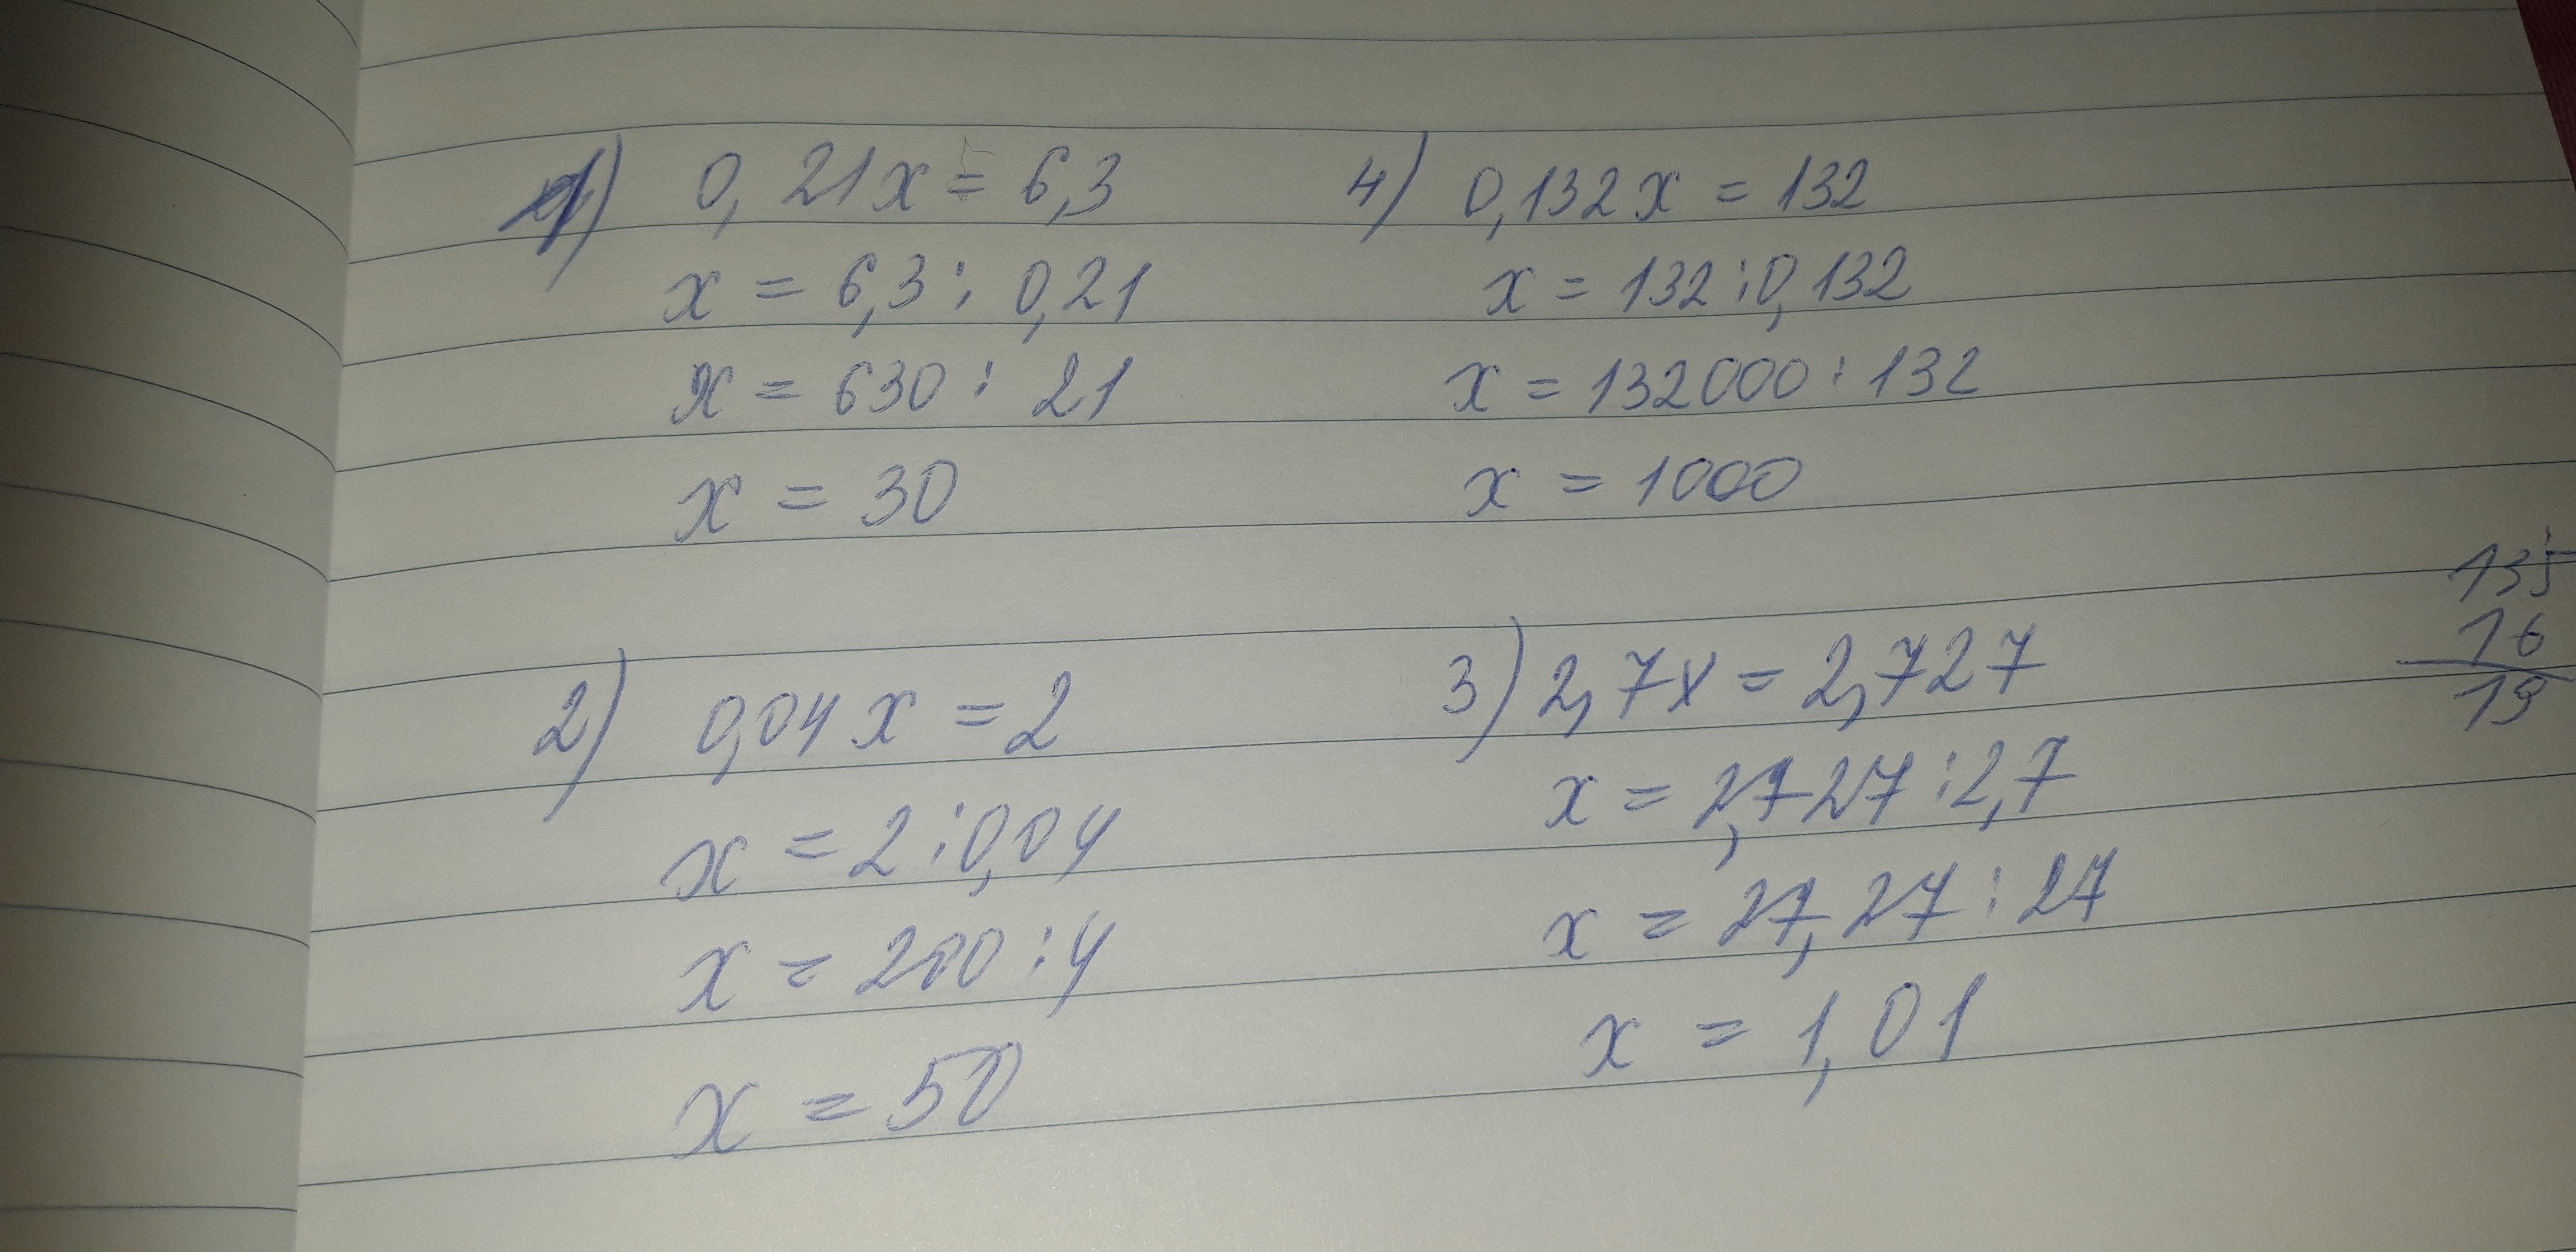 1) 0,21x = 6,3
x = 6,3 : 0,21
x = 630 : 21
x = 30
4) 0,132x = 132
x = 132 : 0,132
x = 132000 : 132
x = 1000
2) 0,04x = 2
x = 2 : 0,04
x = 200 : 4
x = 50
3) 2,7x = 2,727
x = 2,727 : 2,7
x = 27,27 : 27
x = 1,01
135
16
19